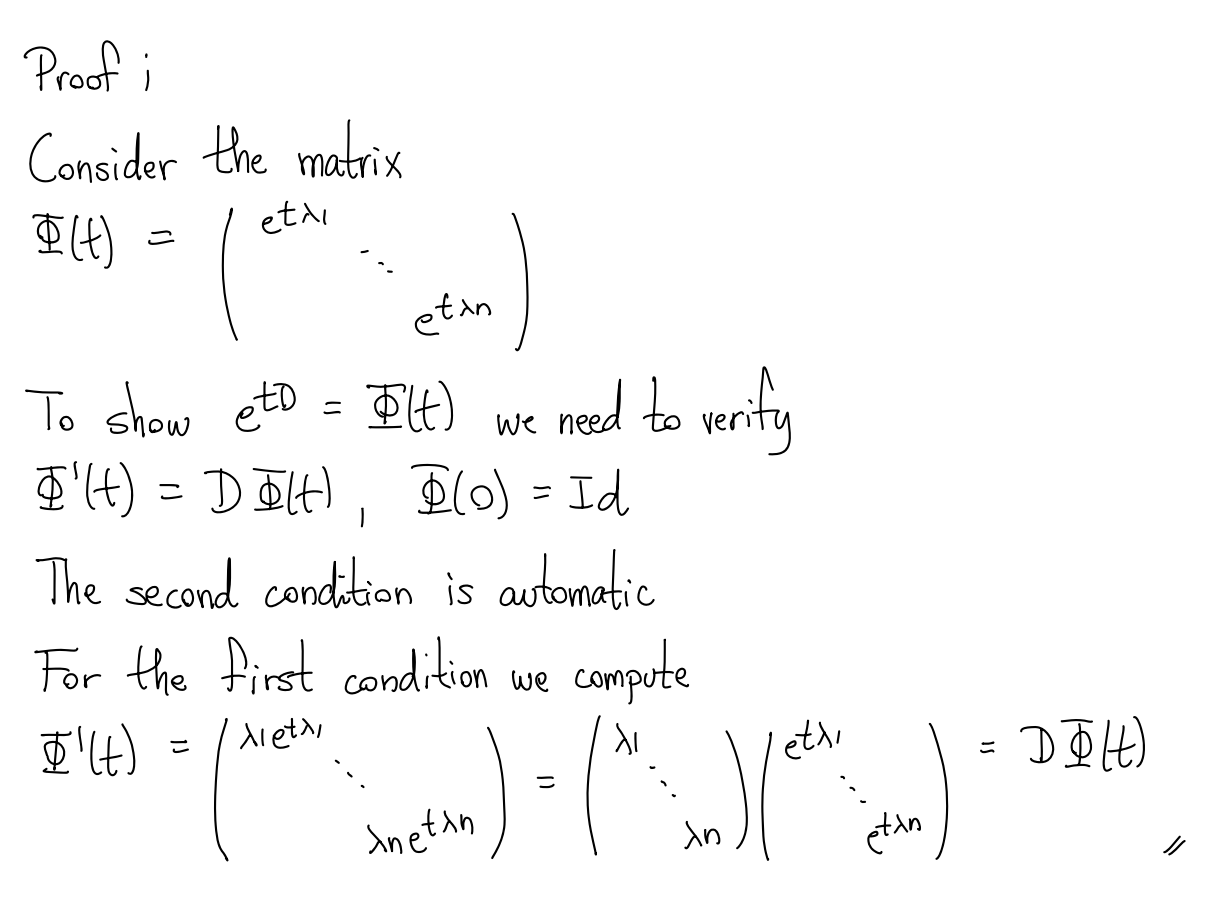 Proof i
Consider the matrix
Φ(t) = ( e^{tλ1} ⋱ e^{tλn} )
To show e^{tD} = Φ(t) we need to verify
Φ'(t) = DΦ(t), Φ(0) = Id
The second condition is automatic
For the first condition we compute
Φ'(t) = ( λ1e^{tλ1} ⋱ λne^{tλn} ) = ( λ1 ⋱ λn ) ( e^{tλ1} ⋱ e^{tλn} ) = DΦ(t) //